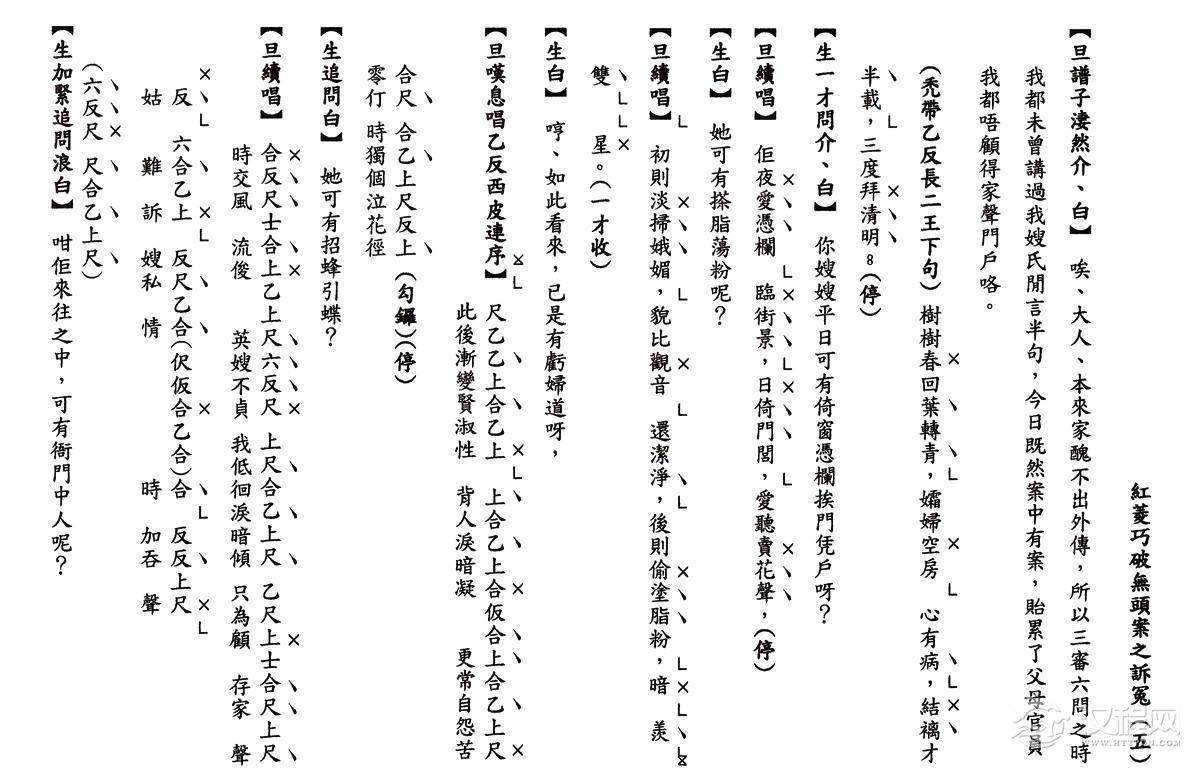 紅菱巧破無頭案之訴冤(五)
【旦譜子淒然介、白】 唉、大人、本來家醜不出外傳,所以三審六問之時
我都未曾講過我嫂氏閒言半句,今日既然案中有案,貽累了父母官員
我都唔顧得家聲門戶咯。
(禿帶乙反長二王下句)樹樹春回葉轉青,孀婦空房 心有病,結褵才
半載,三度拜清明。(停)
【生一才問介、白】 你嫂嫂平日可有倚窗憑欄挨門凭戶呀?
【旦續唱】 佢夜愛憑欄 臨街景,日倚門閭,愛聽賣花聲,(停)
【生白】 她可有搽脂蕩粉呢?
【旦續唱】 初則淡掃娥媚,貌比觀音 還潔淨,後則偷塗脂粉,暗 羨
雙 星。(一才收)
【生白】 哼、如此看來,已是有虧婦道呀,
【旦嘆息唱乙反西皮連序】 尺乙乙上合乙上 上合乙上合仮合上合乙上尺
此後漸變賢淑性 背人淚暗凝 更常自怨苦
合尺 合乙上尺反上 (勾鑼)(停)
零仃 時獨個泣花徑
【生追問白】 她可有招蜂引蝶?
【旦續唱】 合反尺士合上乙上尺六反尺 上尺合乙上尺 乙尺上士合尺上尺
時交風 流俊 英嫂不貞 我低徊淚暗傾 只為顧 存家 聲
反 六合乙上 反尺乙合(伬仮合乙合)合 反反上尺
姑 難 訴 嫂私 情 時 加吞 聲
(六反尺 尺合乙上尺)
【生加緊追問浪白】 咁佢來往之中,可有衙門中人呢?
汉程网
WWW.HTTPCN.COM